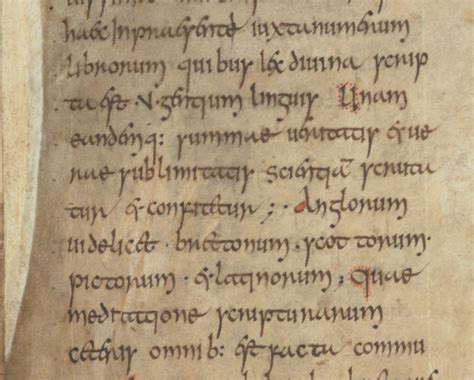 haec In praesenti iuxta numerum
librorum quibus lex diuina scrip
ta est · V · gentium linguis Unam
eandemq: summae ueritatis & ue
rae sublimitatis scientiā scruta
tur & confitetur ; · Anglorum
uidelicet · brettonum · scottorum ·
pictorum · & latinorum ; Quae
meditatione scripturarum
ceteris omnib: est facta commu